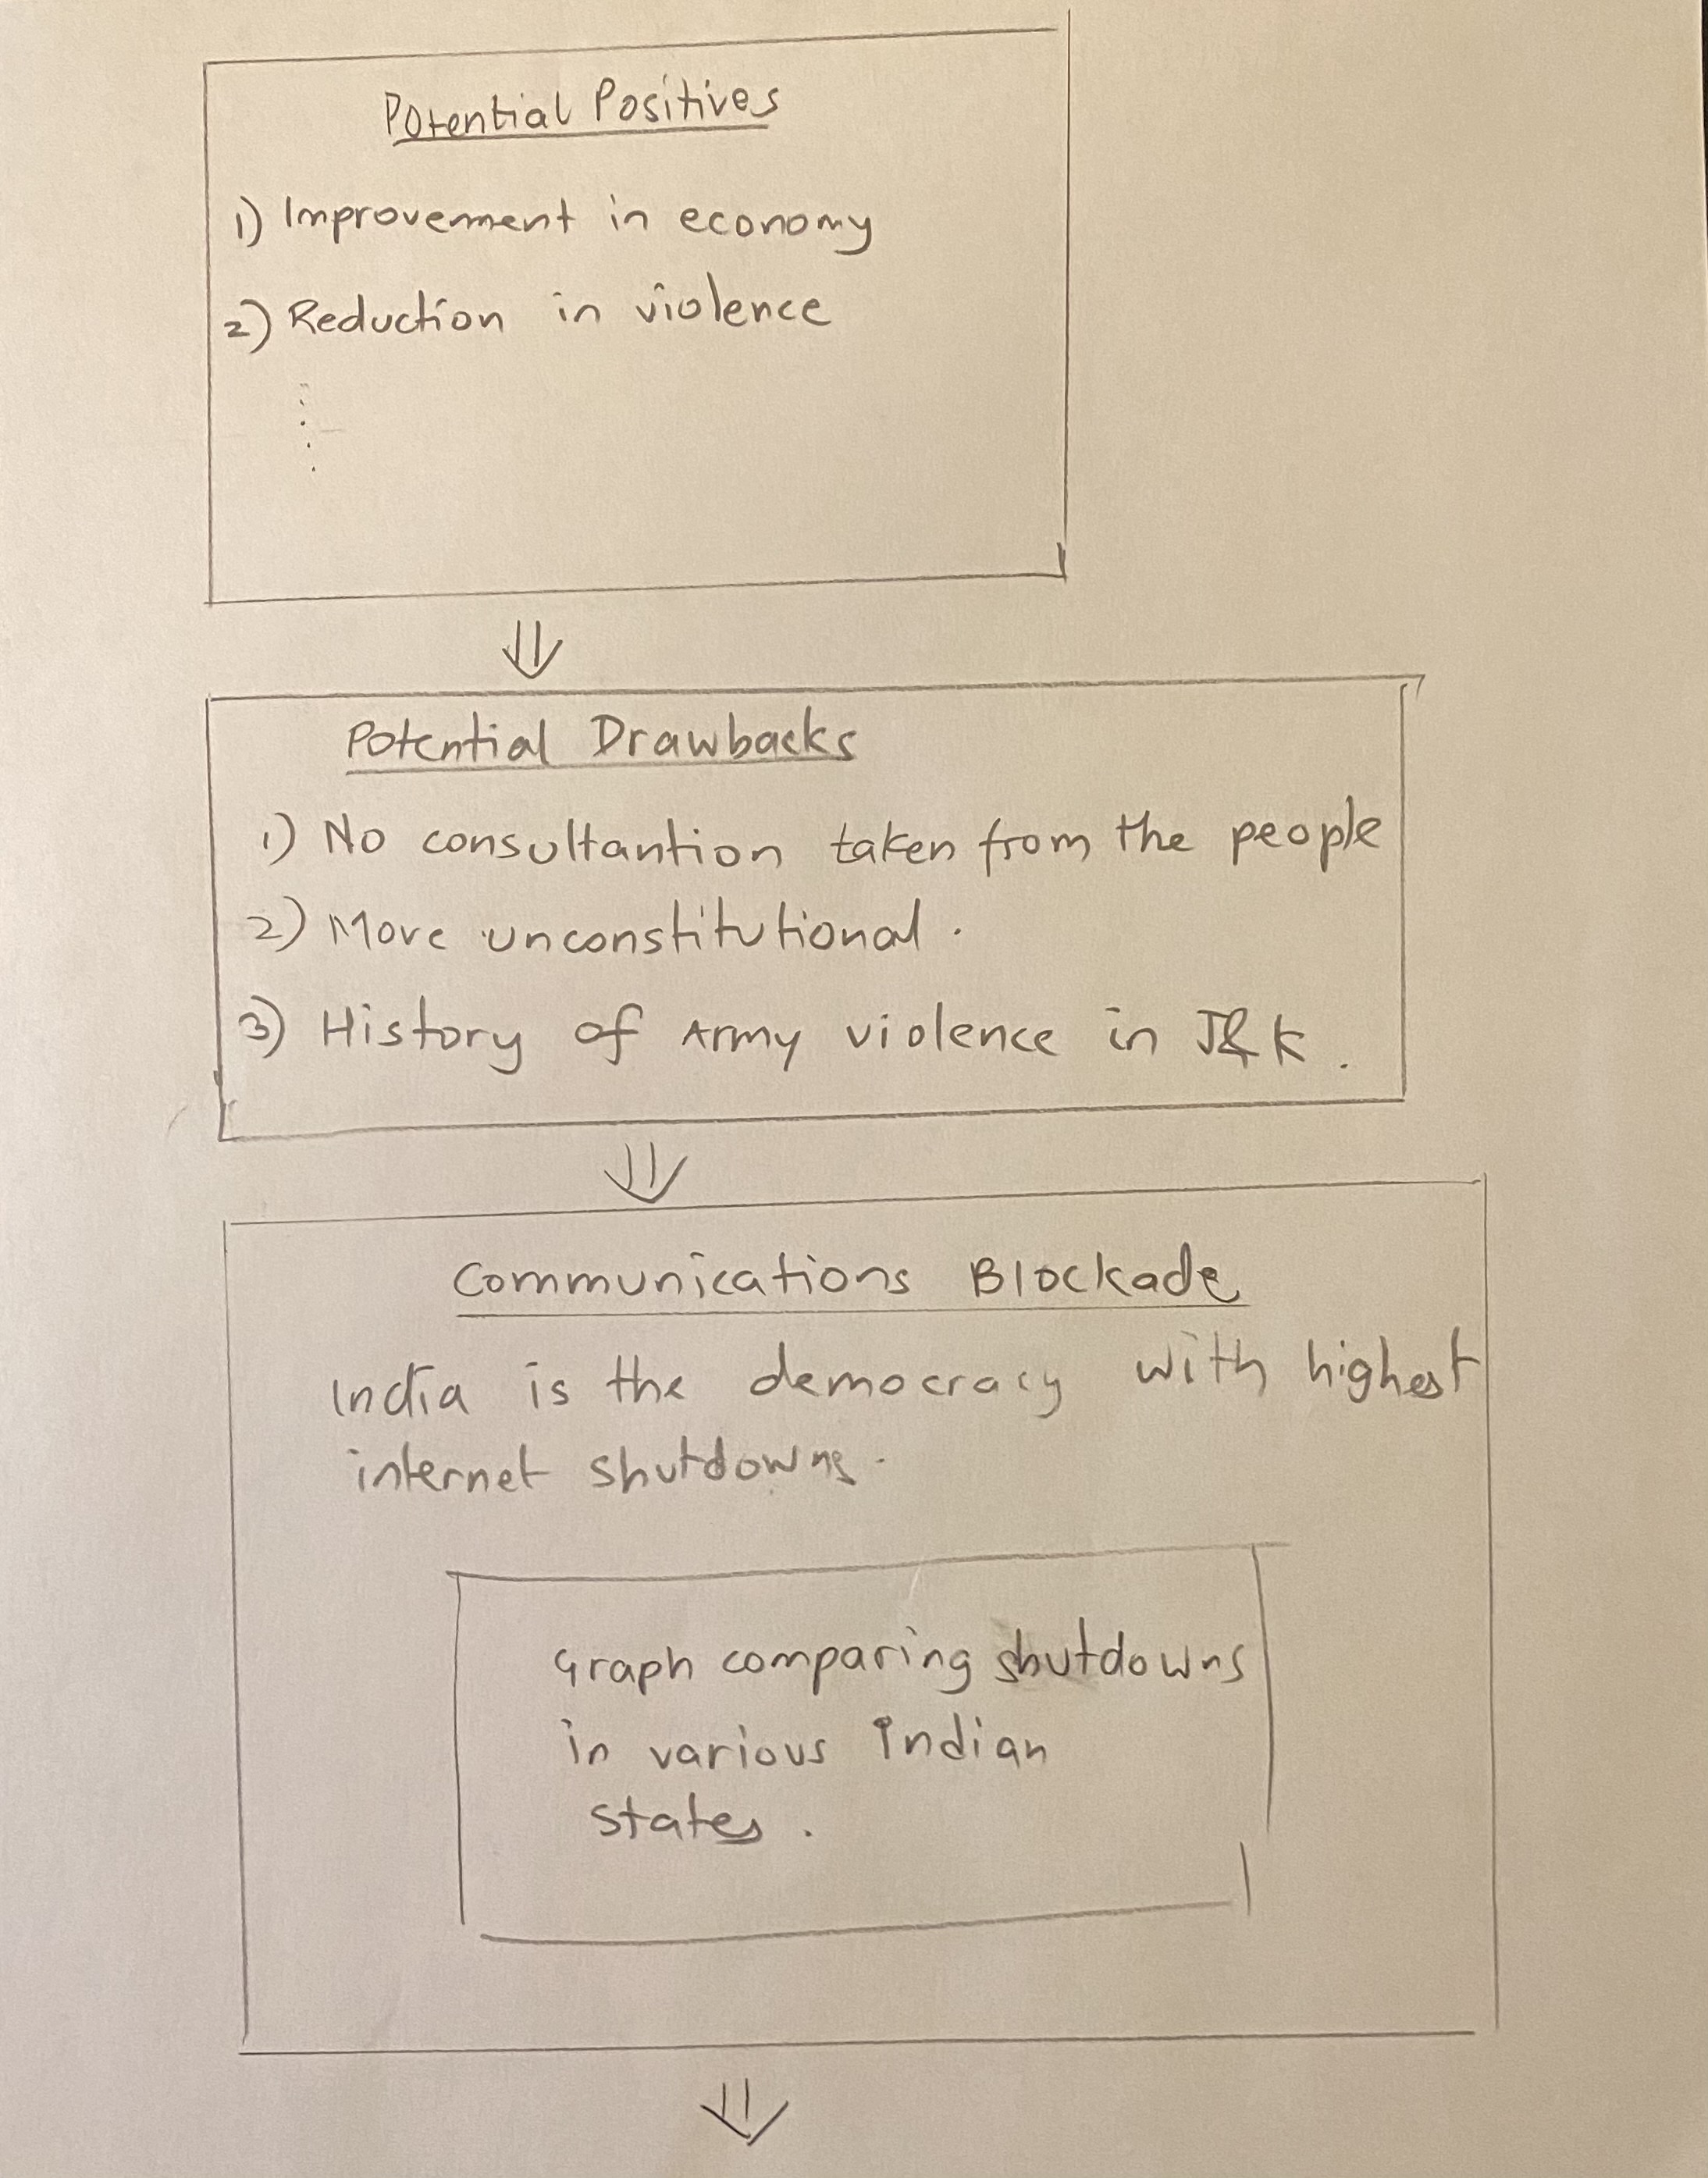 Potential Positives
1) Improvement in economy
2) Reduction in violence
Potential Drawbacks
1) No consultantion taken from the people
2) More unconstitutional.
3) History of Army violence in J&K.
Communications Blockade
India is the democracy with highest
internet shutdowns.
Graph comparing shutdowns
in various Indian
states.